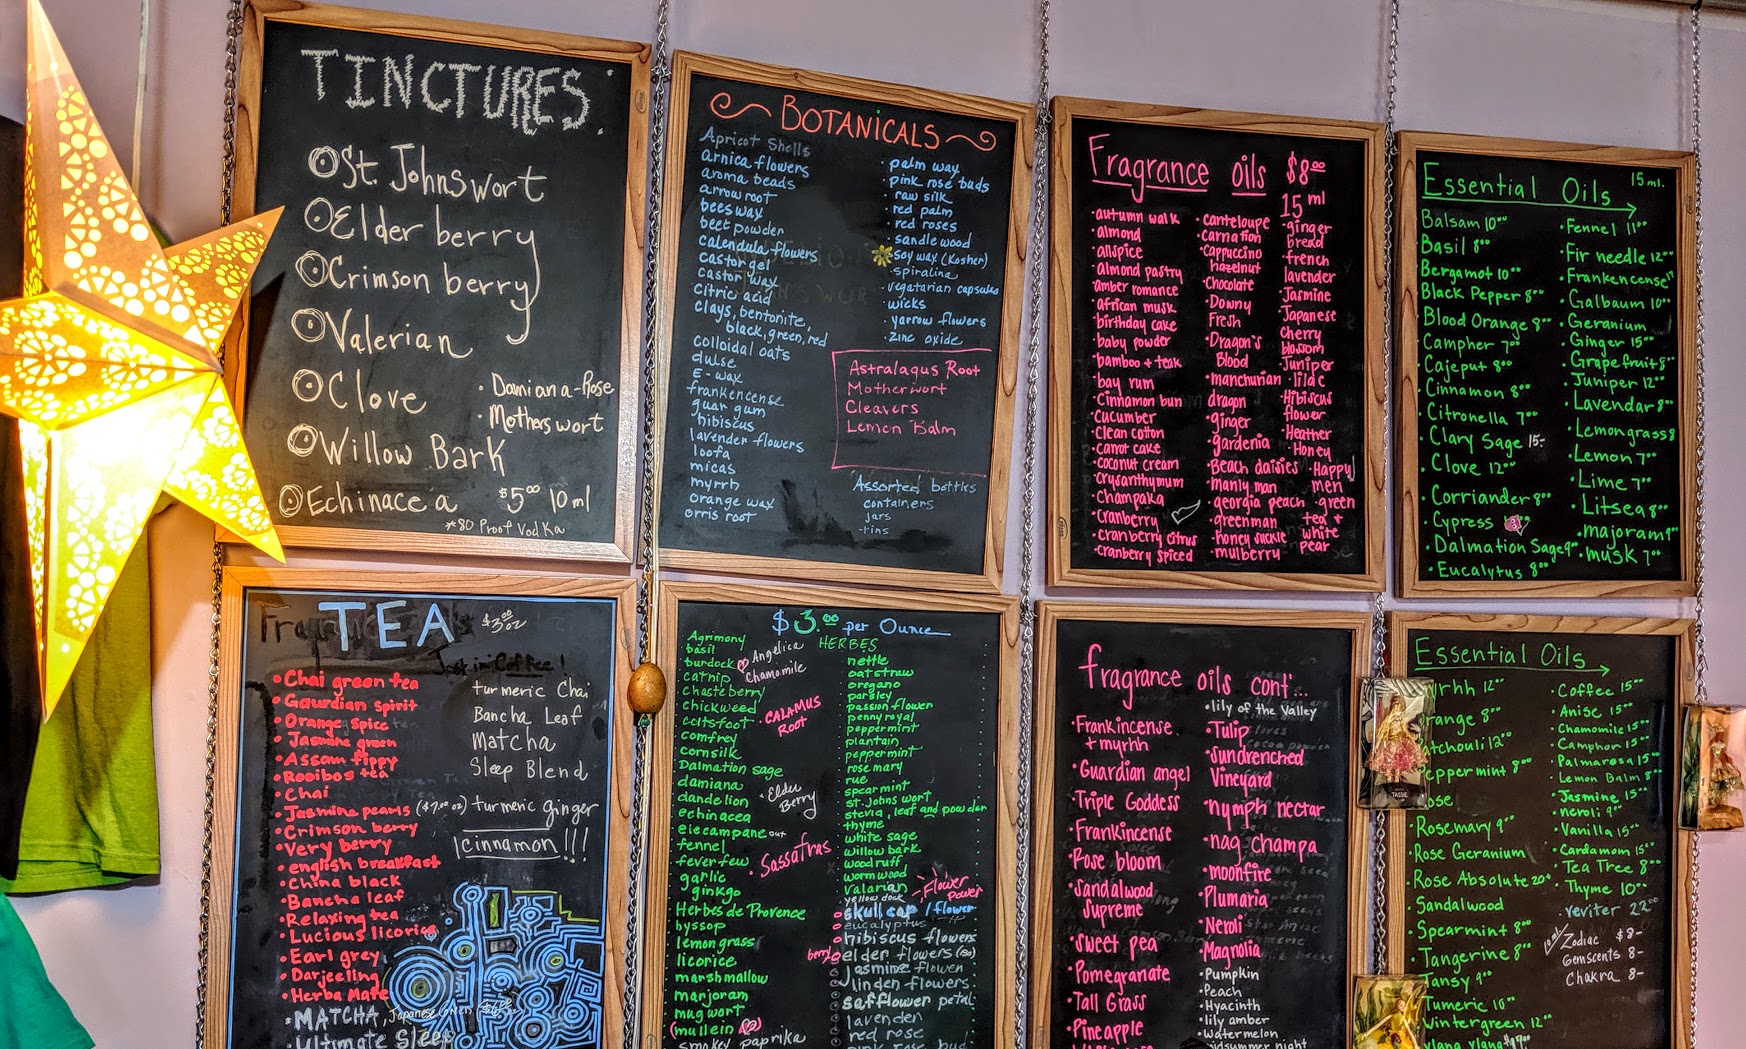 TINCTURES:
St. Johnswort
Elder berry
Crimson berry
Valerian
Clove
• Damiana-Rose
• Motherswort
Willow Bark
Echinacea $5⁰⁰ 10 ml
*80 Proof Vodka
BOTANICALS
Apricot Shells
arnica flowers
aroma beads
arrow root
bees wax
beet powder
calendula flowers
castor gel
castor wax
Citric acid
Clays, bentonite,
black, green, red
colloidal oats
dulse
E-wax
frankencense
guar gum
hibiscus
lavender flowers
loofa
micas
myrrh
orange wax
orris root
• palm wax
• pink rose buds
• raw silk
• red palm
• red roses
• sandlewood
soy wax (Kosher)
• spiralina
• vegatarian capsules
• wicks
• yarrow flowers
• zinc oxide
Astralagus Root
Motherwort
Cleavers
Lemon Balm
Assorted bottles
containers
jars
tins
Fragrance oils $8⁰⁰
15 ml
• autumn walk
• almond
• allspice
• almond pastry
• amber romance
• african musk
• birthday cake
• baby powder
• bamboo + teak
• bay rum
• Cinnamon bun
• cucumber
• clean cotton
• carrot cake
• coconut cream
• crysanthymum
• champaka
• cranberry
• cranberry citrus
• cranberry spiced
• canteloupe
• carnation
• cappuccino
hazelnut
• chocolate
• Downy
Fresh
• Dragon's
Blood
• manchurian
dragon
• ginger
• gardenia
• Beach daisies
• manly man
• georgia peach
• greenman
• honey suckle
• mulberry
• ginger
bread
• french
lavender
• Jasmine
• Japanese
cherry
blossom
• Juniper
• lilac
• Hibiscus
flower
• Heather
• Honey
• Happy
men
• green
tea +
white
pear
Essential Oils 15 ml.
Balsam 10⁰⁰
Basil 8⁰⁰
Bergamot 10⁰⁰
Black Pepper 8⁰⁰
Blood Orange 8⁰⁰
Campher 7⁰⁰
Cajeput 8⁰⁰
Cinnamon 8⁰⁰
• Citronella 7⁰⁰
• Clary Sage 15-
• Clove 12⁰⁰
• Corriander 8⁰⁰
• Cypress
• Dalmation Sage 9⁰⁰
• Eucalytus 8⁰⁰
• Fennel 11⁰⁰
• Fir needle 12⁰⁰
• Frankencense
• Galbaum 10⁰⁰
• Geranium
• Ginger 15⁰⁰
• Grapefruit 8⁰⁰
• Juniper 12⁰⁰
• Lavendar 8⁰⁰
• Lemongrass 8
• Lemon 7⁰⁰
• Lime 7⁰⁰
• Litsea 8⁰⁰
• majoram 9⁰⁰
• musk 7⁰⁰
TEA $3⁰⁰ oz
Just in Coffee!
• Chai green tea
• Gaurdian spirit
• Orange spice
• Jasmine green
• Assam tippy
• Rooibos tea
• Chai
• Jasmine pearls ($7⁰⁰ oz)
• Crimson berry
• Very berry
• english breakfast
• China black
• Bancha leaf
• Relaxing tea
• Lucious licorice
• Earl grey
• Darjeeling
• Herba Mate
• MATCHA, Japanese Green
• Ultimate Sleep
turmeric Chai
Bancha Leaf
Matcha
Sleep Blend
turmeric ginger
cinnamon!!!
$3.⁰⁰ per Ounce
HERBES
Agrimony
basil
burdock
catnip
chaste berry
chickweed
coltsfoot
comfrey
cornsilk
Dalmation sage
damiana
dandelion
echinacea
elecampane out
fennel
feverfew
garlic
ginkgo
Herbes de Provence
hyssop
lemongrass
licorice
marshmallow
marjoram
mugwort
(mullein)
smokey paprika
Angelica
Chamomile
• CALAMUS
Root
• Elder
Berry
• Sassafras
nettle
oatstraw
oregano
parsley
passion flower
pennyroyal
peppermint
plantain
peppermint
rosemary
rue
spearmint
st. Johns wort
stevia, leaf and powder
thyme
white sage
willow bark
woodruff
wormwood
valarian
yellow dock
Flower
Power
skullcap / flower
eucalyptus
hibiscus flowers
berry elder flowers
Jasmine flowen
linden flowers
safflower petal
lavender
red rose
pink rose bud
fragrance oils cont'...
• Frankincense
+ myrhh
• Guardian angel
• Triple Goddess
• Frankincense
• Rose bloom
• Sandalwood
Supreme
• sweet pea
• Pomegranate
• Tall Grass
• Pineapple
• lily of the Valley
• Tulip
• Sundrenched
Vineyard
• nymph nectar
• nag champa
• moonfire
• Plumaria
• Neroli
• Magnolia
• Pumpkin
• Peach
• Hyacinth
• lily amber
• Watermelon
midsummer night
Essential Oils
yrhh 12⁰⁰
range 8⁰⁰
atchouli 12⁰⁰
Peppermint 8⁰⁰
ose
• Rosemary 9⁰⁰
• Rose Geranium
• Rose Absolute 20⁰⁰
• Sandalwood
• Spearmint 8⁰⁰
• Tangerine 8⁰⁰
Tansy 9⁰⁰
Tumeric 10⁰⁰
Wintergreen 12⁰⁰
ylang ylang
• Coffee 15⁰⁰
• Anise 15⁰⁰
• Chamomile 15⁰⁰
• Camphor 15⁰⁰
• Palmarosa 15⁰⁰
• Lemon Balm 8⁰⁰
• Jasmine 15⁰⁰
• neroli 9⁰⁰
• Vanilla 15⁰⁰
• Cardamom 15⁰⁰
• Tea Tree 8⁰⁰
• Thyme 10⁰⁰
• veviter 22⁰⁰
10 ml. Zodiac $8-
Gemscents 8-
Chakra 8-
TASSIE